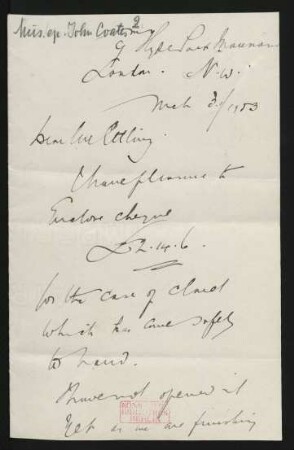 Mus. ep. John Coates 2
9 Hyde Park Mansions
London. N.W.
Mch 3/1903
Dear Mr
I have pleasure to
Enclose cheque
£2.14.6.
for the case of claret
which has come safely
to hand.
I have not opened it
Yet as we are finishing